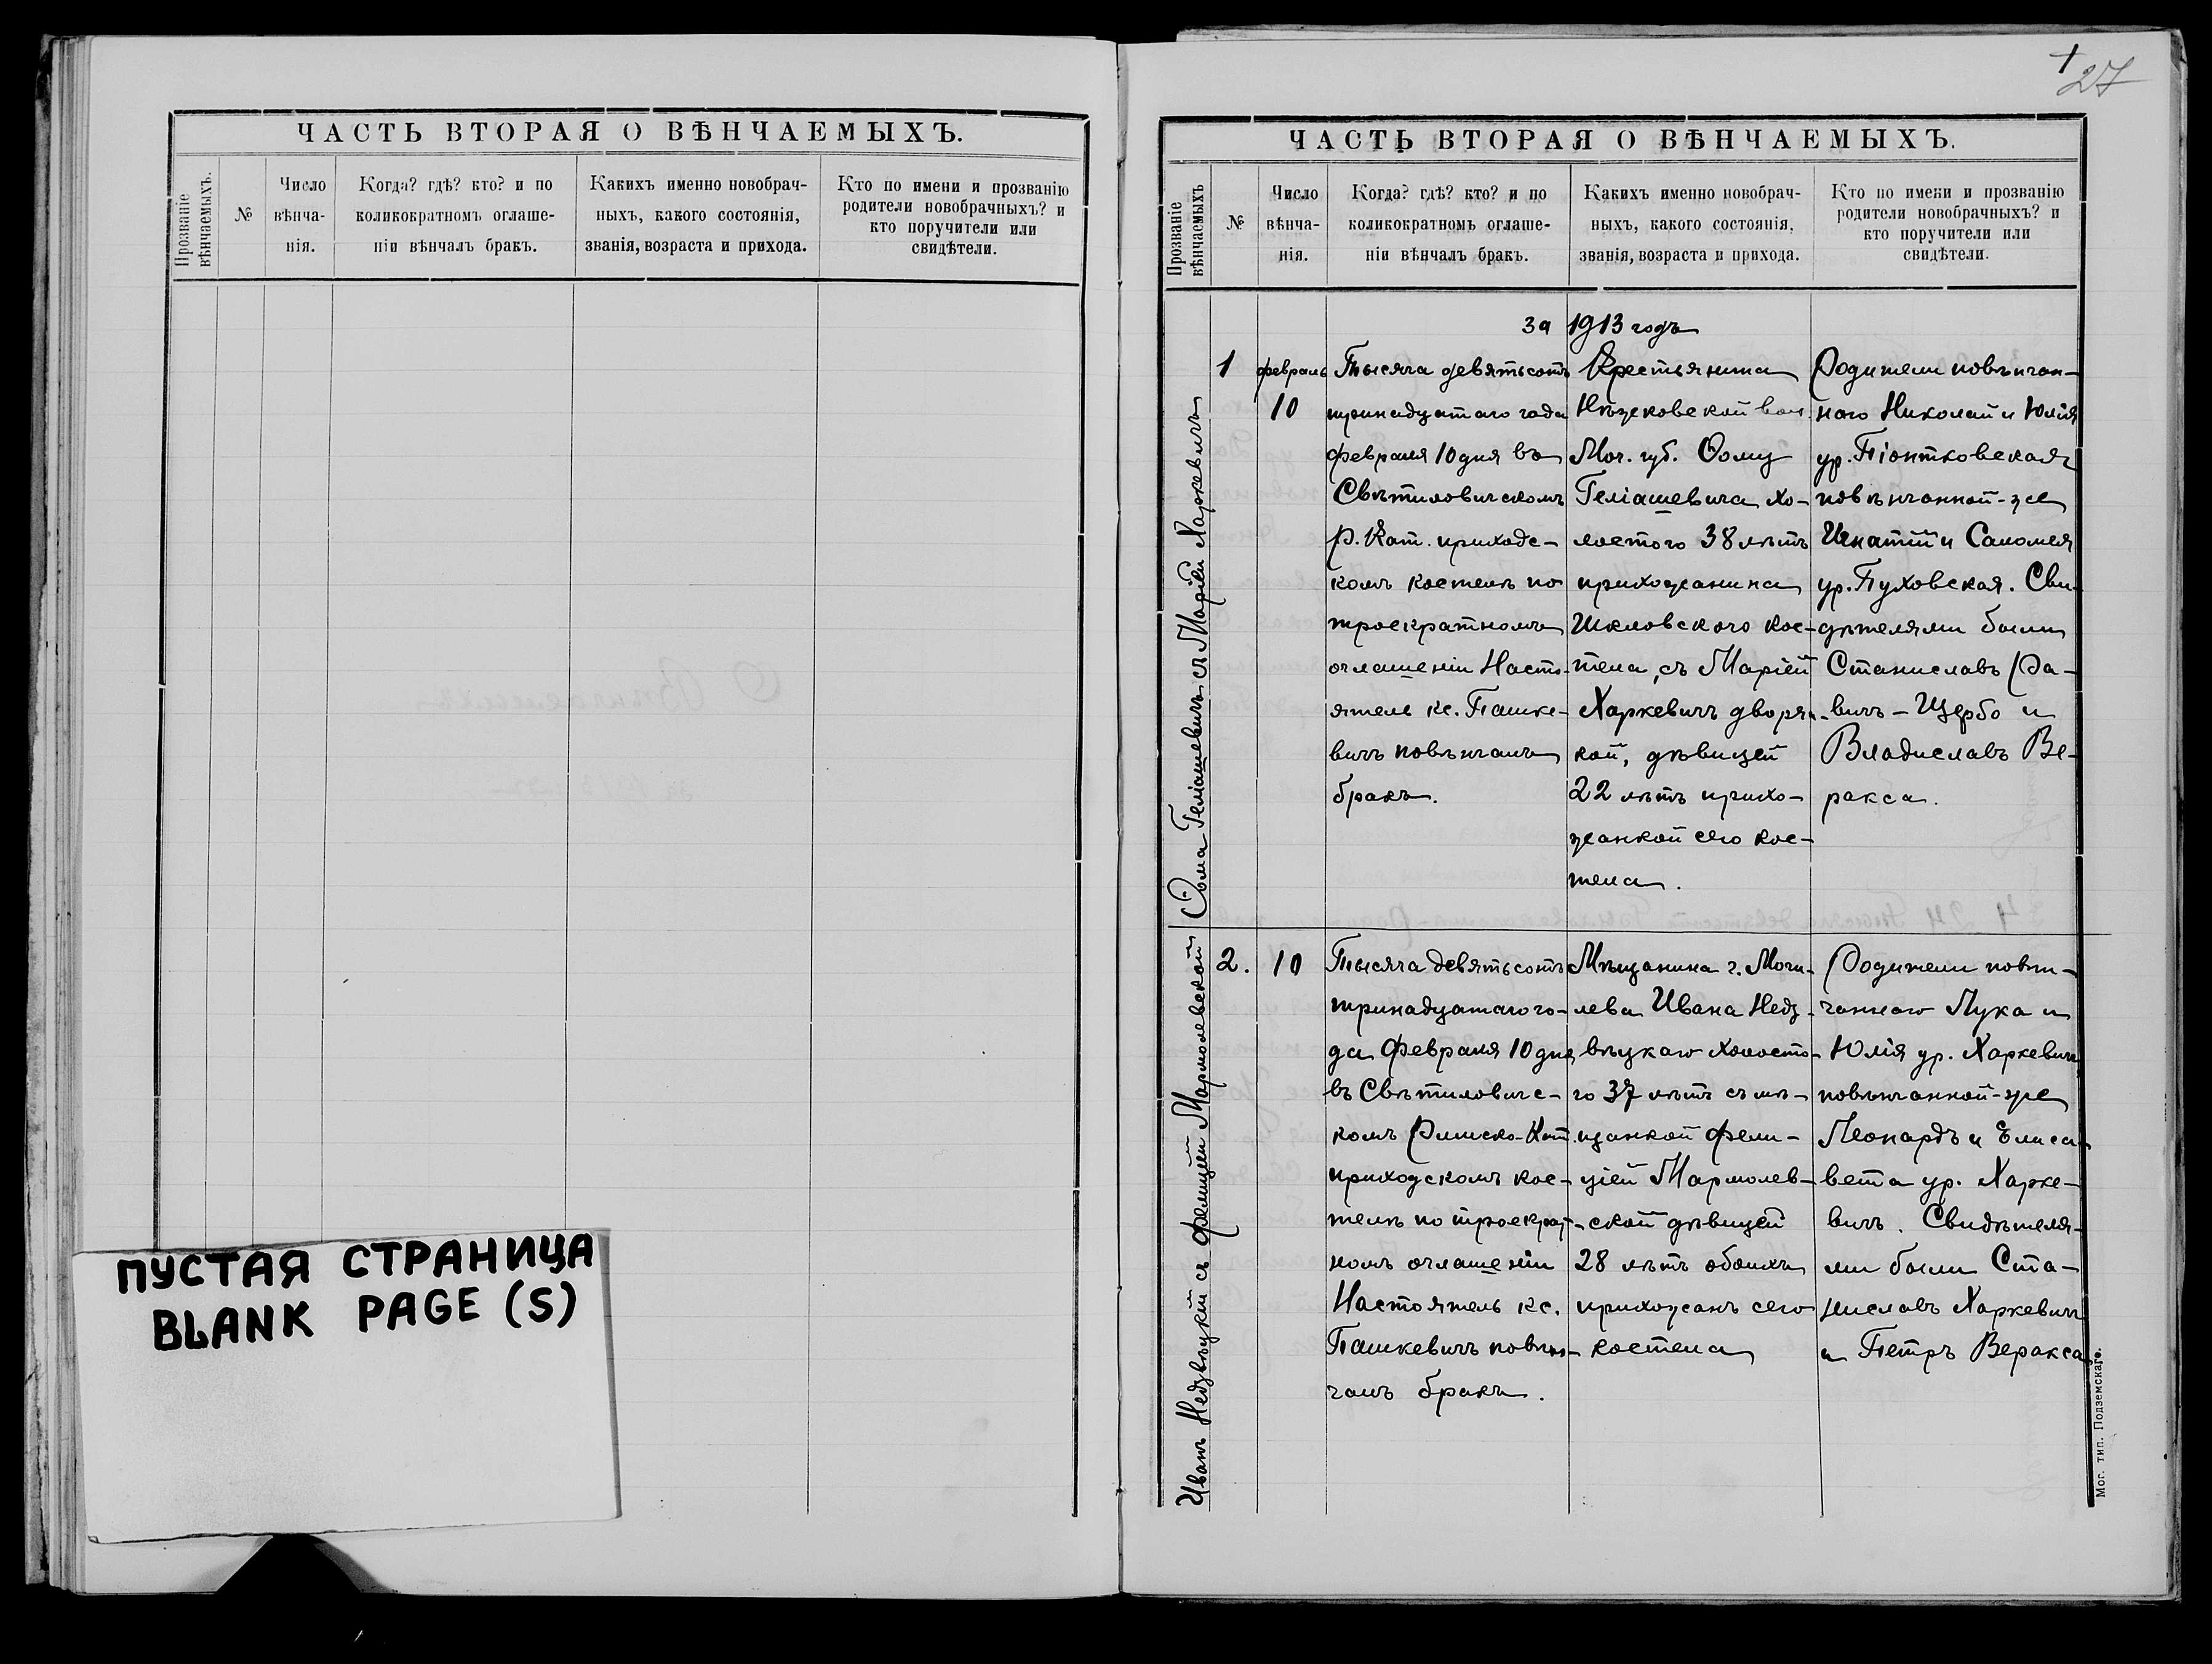 ЧАСТЬ ВТОРАЯ О ВѢНЧАЕМЫХЪ.
Прозваніе
вѣнчаемыхъ.
№
Число
вѣнча-
нія.
Когда? гдѣ? кто? и по
коликократномъ оглаше-
ніи вѣнчалъ бракъ.
Какихъ именно новобрач-
ныхъ, какого состоянія,
званія, возраста и прихода.
Кто по имени и прозванію
родители новобрачныхъ? и
кто поручители или
свидѣтели.
ПУСТАЯ СТРАНИЦА
BLANK PAGE (S)
27
ЧАСТЬ ВТОРАЯ О ВѢНЧАЕМЫХЪ.
Прозваніе
вѣнчаемыхъ
№
Число
вѣнча-
нія.
Когда? гдѣ? кто? и по
коликократномъ оглаше-
ніи вѣнчалъ бракъ.
Какихъ именно новобрач-
ныхъ, какого состоянія,
званія, возраста и прихода.
Кто по имени и прозванію
родители новобрачныхъ? и
кто поручители или
свидѣтели.
за 1913 годъ
Ѳома Геліашевичъ съ Маріей Харкевичъ
1
февраль
10
Тысяча девятьсотъ
тринадцатаго года
февраля 10 дня въ
Свѣтиловичскомъ
Р. Кат. приходс-
комъ костелѣ по
троекратномъ
оглашеніи Насто-
ятель кс. Пашке-
вичъ повѣнчалъ
бракъ.
Крестьянина
вол.
Мог. губ. Ѳому
Геліашевича хо-
лостого 38 лѣтъ
прихожанина
Шкловского кос-
тела, съ Маріей
Харкевичъ дворян-
кой, дѣвицей
22 лѣтъ прихо-
жанкой сего кос-
тела.
Родители повѣнчан-
ного Николай и Юлія
ур. Піонтковская,
повѣнчанной-же
Игнатій и Саломея
ур. Пуховская. Сви-
дѣтелями были
Станиславъ Ра-
вичъ-Щербо и
Владиславъ Ве-
ракса.
Иванъ Недзвѣцкій съ Фелиціей Мармолевской
2.
10
Тысяча девятьсотъ
тринадцатаго го-
да февраля 10 дня
въ Свѣтиловичс-
комъ Римско-Кат.
приходскомъ кос-
телѣ по троекрат-
номъ оглашеніи
Настоятель кс.
Пашкевичъ повѣн-
чалъ бракъ.
Мѣщанина г. Моги-
лева Ивана Недз-
вѣцкаго холосто-
го 37 лѣтъ съ мѣ-
щанкой Фели-
ціей Мармолев-
ской дѣвицей
28 лѣтъ обоихъ
прихожанъ сего
костела
Родители повѣн-
чаннаго Лука и
Юлія ур. Харкевичъ,
повѣнчанной-же
Леонардъ и Елиса-
вета ур. Харке-
вичъ. Свидѣтеля-
ми были Ста-
ниславъ Харкевичъ
и Петръ Веракса
Мог. тип. Подземскаго.